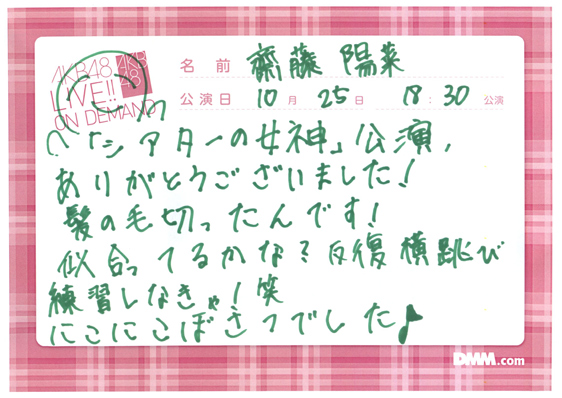 AKB48
LIVE!!
ON DEMAND
AKB
48
名前 齋藤 陽菜
公演日 10月 25日 18:30 公演
「シアターの女神」公演、
ありがとうございました!
髪の毛切ったんです!
似合ってるかな?反復横跳び
練習しなきゃ!笑
にこにこぼさつでした♪
DMM.com